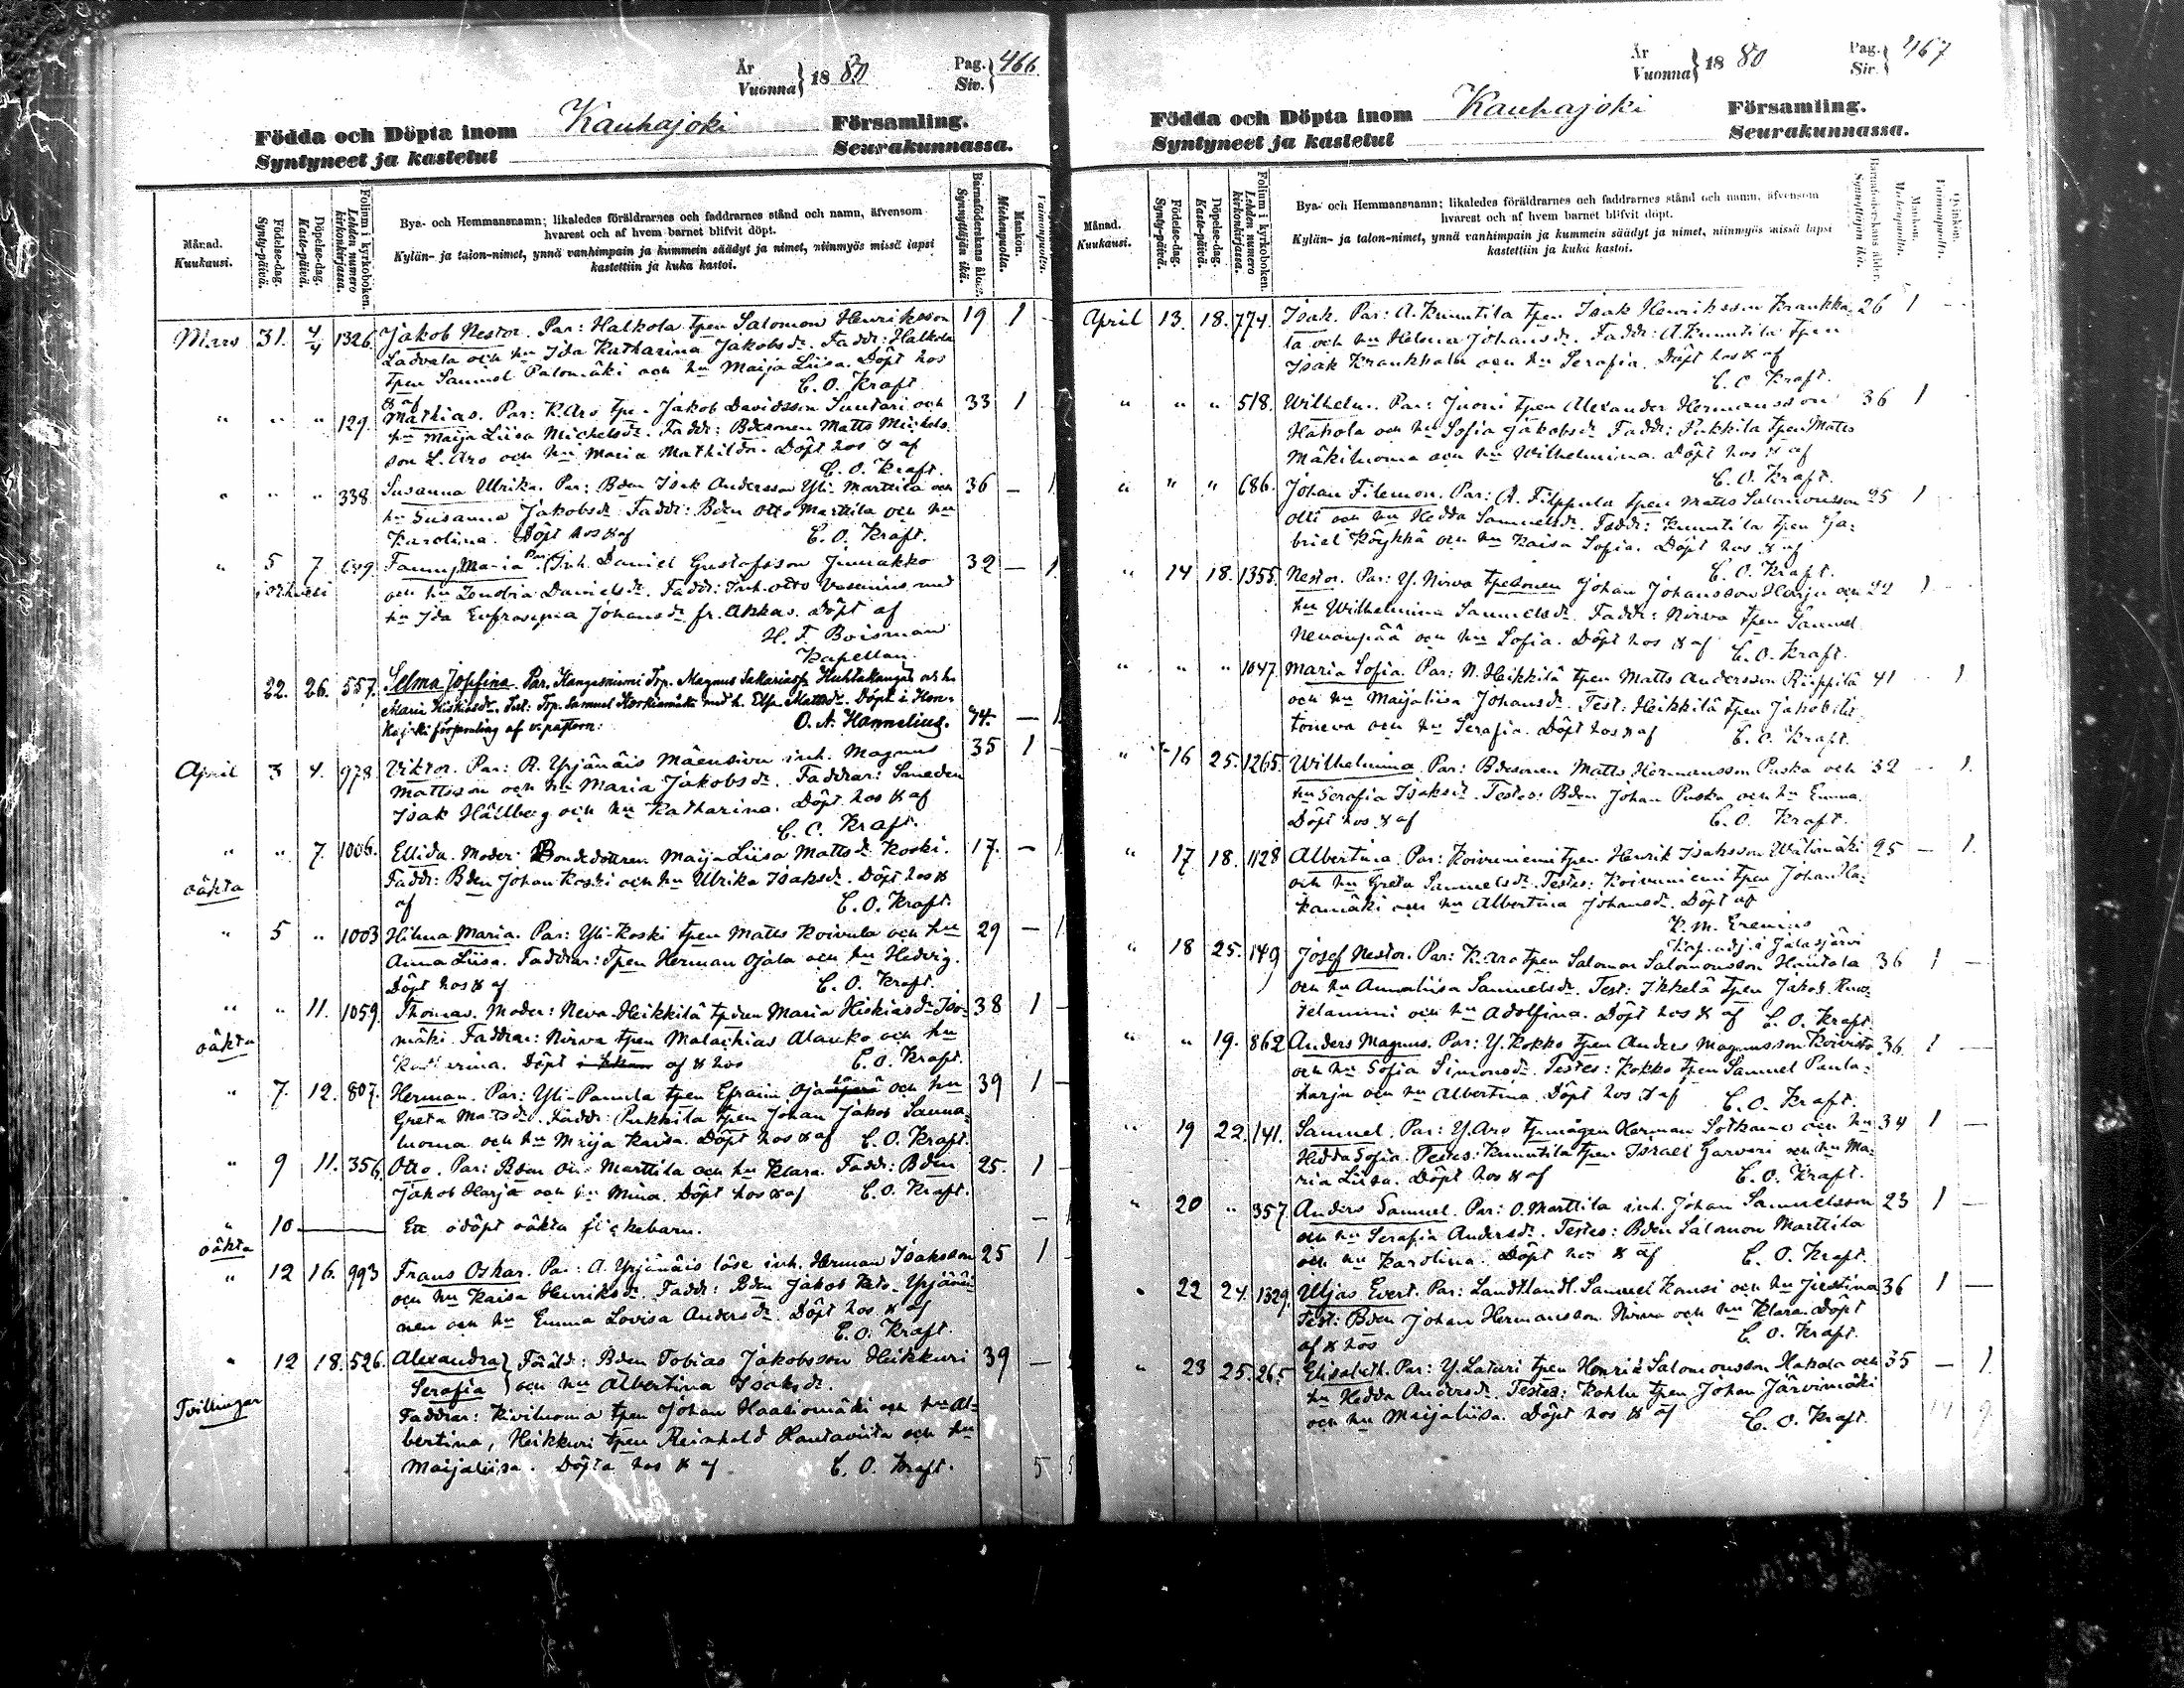 År
Vuonna } 18 80
Pag.
Siv. } 466
Födda och Döpta inom Kauhajoki Församling.
Syntyneet ja kastetut Seurakunnassa.
Månad.
Kuukausi.
Födelse-dag.
Synty-päivä.
Döpelse-dag.
Kaste-päivä.
Folium i kyrkoboken.
Lehden numero kirkonkirjassa.
Bya- och Hemmansnamn; likaledes föräldrarnes och faddrarnes stånd och namn, äfvensom
hvarest och af hvem barnet blifvit döpt.
Kylän- ja talon-nimet, ynnä vanhimpain ja kummein säädyt ja nimet, niinmyös missä lapsi
kastettiin ja kuka kastoi.
Barnaföderskans ålder.
Synnyttäjän ikä.
Mankön.
Miehenpuolta.
Vaimonpuolta.
Mars 31. 4/4 1326. Jakob Nestor. Par: Halkola tpen Salomon Henriksson 19 1
Ladvala och hu Ida Katharina Jakobsdr. Faddr: Halkola
tpen Samuel Palomäki och hu Maija Liisa. Döpt hos
& af C. O. Kraft
" " " 129. Mathias. Par: K.Aro tpen Jakob Davidsson Suutari och 33 1
hu Maija Liisa Michelsdr. Faddr: Bdesonen Matts Michels-
son L. Aro och hu Maria Mathilda. Döpt hos & af
C. O. Kraft.
" " " 338. Susanna Ulrika. Par: Bden Isak Andersson Yli-Marttila och 36 — 1
hu Susanna Jakobsdr. Faddr: Bden Otto Marttila och hu
Karolina. Döpt hos & af C. O. Kraft.
" 5 7. 649. Fanny Maria. Par: Inh. Daniel Gustafsson Jinnakko 32 — 1
och hu Zenobia Danielsdr. Faddr: Inh. Otto Vesenius med
hu Ida Eufrosyna Johansdr. fr. Akkas. Döpt af
H. F. Boisman
Kapellan.
22. 26. 557. Selma Josefina. Par. Kangasniemi Tp. Magnus Sakariass. Huhtakangas och h.
Maria Hiskiasdr. Test: Tp. Samuel Koskiemäki med h. Elsa Mattsdr. Döpt i Hon-
kajoki församling af v. pastorn: O. A. Hannelius. 44. — 1
April 3 4. 978. Viktor. Par: A. Yrjänäis Mäensivu inh. Magnus 35 1
Mattsson och hu Maria Jakobsdr. Faddrar: Smeden
Isak Hällberg och hu Katharina. Döpt hos & af
C. O. Kraft.
" " 7. 1006. Ellida. Moder: Bondedottren Maija Liisa Mattsdr Koski. 17. — 1
oäkta Faddr: Bden Johan Koski och hu Ulrika Isaksdr. Döpt hos &
af C. O. Kraft.
" 5 " 1003 Hilma Maria. Par: Yli-Koski tpen Matts Koivula och hu 29 — 1
Anna Liisa. Faddrar: Tpen Herman Ojala och hu Hedvig.
Döpt hos & af C. O. Kraft.
" " 11. 1059. Thomas. Moder: Neva-Heikkilä tpdren Maria Hiskiasdr Iso- 38 1
oäkta mäki. Faddrar: Nirva tpen Malachias Alanko och hu
Katherina. Döpt af & hos C. O. Kraft.
" 7. 12. 807. Herman. Par: Yli-Panula tpen Efraim Oja och hu 39 1
Greta Mattsdr. Faddr: Pukkila tpen Johan Jakob Sauna-
luoma och hu Maija Kaisa. Döpt hos & af C. O. Kraft.
" 9 11. 356. Otto. Par: Bden Otto Marttila och hu Klara. Faddr: Bden 25. 1
Jakob Harja och hu Mina. Döpt hos & af C. O. Kraft.
" 10 — Ett odöpt oäkta flickebarn. —
oäkta
" 12 16. 993 Frans Oskar. Par: A. Yrjänäis löse inh. Herman Isaksson 25 1
och hu Kaisa Henriksdr. Faddr: Bden Jakob Yrjänäi-
nen och hu Emma Lovisa Andersdr. Döpt hos & af
C. O. Kraft.
" 12 18. 526. Alexandra } Föräld: Bden Tobias Jakobsson Heikkuri 39 —
Serafia } och hu Albertina Isaksdr.
Tvillingar Faddrar: Kiviluoma tpen Johan Haaliomäki och hu Al-
bertina, Heikkuri tpen Reinhold Hautaviita och hu
Maijaliisa. Döpta hos & af C. O. Kraft. 5
År
Vuonna } 18 80
Pag.
Siv. } 467
Födda och Döpta inom Kauhajoki Församling.
Syntyneet ja kastetut Seurakunnassa.
Månad.
Kuukausi.
Födelse-dag.
Synty-päivä.
Döpelse-dag.
Kaste-päivä.
Folium i kyrkoboken.
Lehden numero kirkonkirjassa.
Bya- och Hemmansnamn; likaledes föräldrarnes och faddrarnes stånd och namn, äfvensom
hvarest och af hvem barnet blifvit döpt.
Kylän- ja talon-nimet, ynnä vanhimpain ja kummein säädyt ja nimet, niinmyös missä lapsi
kastettiin ja kuka kastoi.
Barnaföderskans ålder.
Synnyttäjän ikä.
Mankön.
Miehenpuolta.
Qvinkön.
Vaimonpuolta.
April 13. 18. 774. Isak. Par: A. Knuutila tpen Isak Henriksson Krankka- 26 1
la och hu Helena Johansdr. Faddr: A. Knuutila tpen
Isak Krankkala och hu Serafia. Döpt hos & af
C. O. Kraft.
" " " 518. Wilhelm. Par: Juoni tpen Alexander Hermansson 36 1
Hakola och hu Sofia Jakobsdr. Faddr: Pukkila tpen Matts
Mäkiluoma och hu Wilhelmina. Döpt hos & af
C. O. Kraft.
" " " 686. Johan Filemon. Par: A. Filppula tpen Matts Salomonsson 25 1
Olli och hu Hedda Samuelsdr. Faddr: Knuutila tpen Ga-
briel Köykkä och hu Kaisa Sofia. Döpt hos & af
C. O. Kraft.
" 14 18. 1355. Nestor. Par: Y. Nirva tpesonen Johan Johansson Harju och 22 1
hu Wilhelmina Samuelsdr. Faddr: Nirva tpen Samuel
Nevanpää och hu Sofia. Döpt hos & af C. O. Kraft.
" " " 1047. Maria Sofia. Par: N. Heikkilä tpen Matts Andersson Riippilä 41 1
och hu Maijaliisa Johansdr. Test: Heikkilä tpen Jakob
toneva och hu Serafia. Döpt hos & af C. O. Kraft.
" 16 25. 1265. Wilhelmina. Par: Bdesonen Matts Hermansson Puska och 32 — 1.
hu Serafia Isaksdr. Testes: Bden Johan Puska och hu Emma.
Döpt hos & af C. O. Kraft.
" 17 18. 1128 Albertina. Par: Koivuniemi tpen Henrik Isaksson Wälimäki 25 — 1.
och hu Greta Samuelsdr. Testes: Koivuniemi tpen Johan Ha-
kamäki och hu Albertina Johansdr. Döpt af
K. M. Erenius
Kap. adj. i Jalasjärvi
" 18 25. 149 Josef Nestor. Par: K. Aro tpen Salomon Salomonsson Hautala 36 1 —
och hu Annaliisa Samuelsdr. Test: Ikkelä tpen Jakob
och hu Adolfina. Döpt hos & af C. O. Kraft.
" " 19. 862 Anders Magnus. Par: Y. Kokko tpen Anders Magnusson Koivisto 36. 1 —
och hu Sofia Simonsdr. Testes: Kokko tpen Samuel Panta-
harju och hu Albertina. Döpt hos & af C. O. Kraft.
" 19 22. 141. Samuel. Par: Y. Aro tpmågen Herman Sotkamo och hu 34 1 —
Hedda Sofia. Testes: Knuutila tpen Israel Garveri och hu Ma-
ria Liisa. Döpt hos & af C. O. Kraft.
" 20 " 357 Anders Samuel. Par: O. Marttila inh. Johan Samuelsson 23 1 —
och hu Serafia Andersdr. Testes: Bden Salomon Marttila
och hu Karolina. Döpt hos & af C. O. Kraft.
" 22 24. 1329. Uljas Evert. Par: Landthandl. Samuel Kansi och hu Justina 36 1 —
Test: Bden Johan Hermansson Nirva och hu Klara. Döpt
af & hos C. O. Kraft.
" 23 25. 265 Elisabeth. Par: Y. Laturi tpen Henrik Salomonsson Hakola och 35 — 1.
hu Hedda Andersdr. Testes: Kohlu tpen Johan Järvimäki
och hu Maijaliisa. Döpt hos & af C. O. Kraft. 14 9